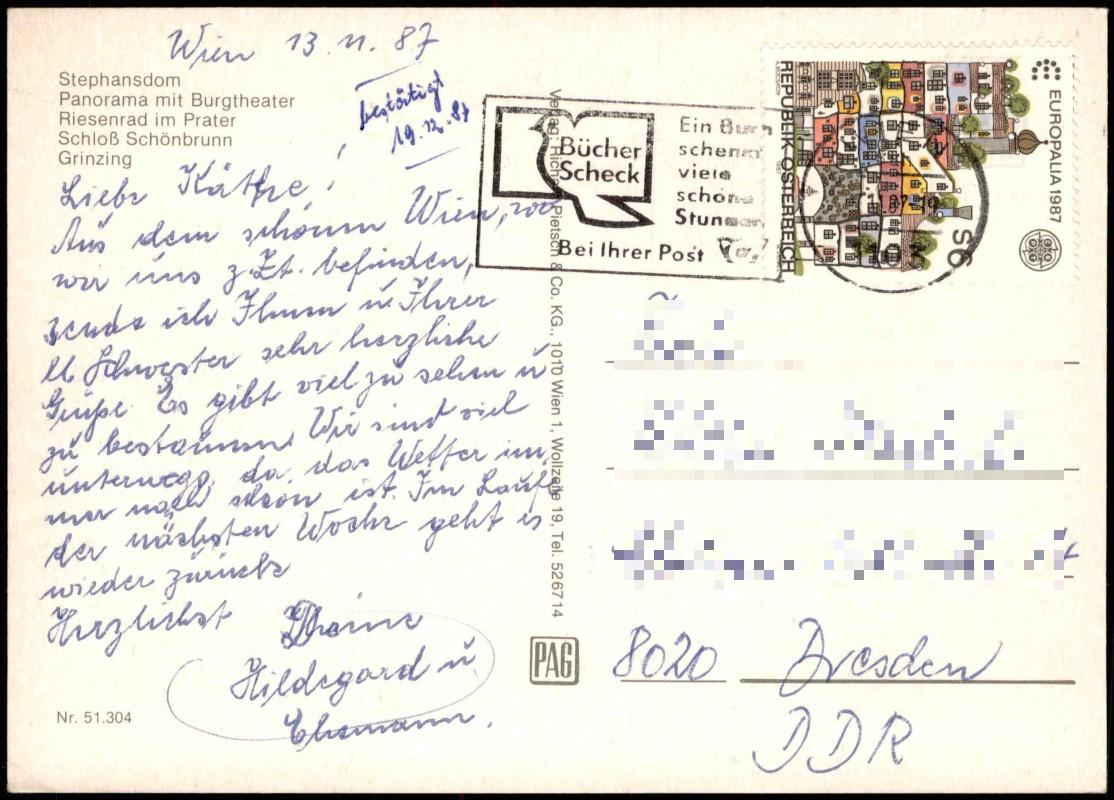 Wien 13.11.87
bestätigt
19.12.87
Stephansdom
Panorama mit Burgtheater
Riesenrad im Prater
Schloß Schönbrunn
Grinzing
Liebe Käthe!
Aus dem schönen Wien, wo
wir uns z. Zt. befinden,
sende ich Ihnen u. Ihrer
lb Schwester sehr herzliche
Grüße Es gibt viel zu sehen u
zu bestaunen. Wir sind viel
unterwegs, da das Wetter im
mer noch schön ist. Im Laufe
der nächsten Woche geht es
wieder zurück
Herzlichst
Hildegard u.
Ehemann.
Nr. 51.304
Verlag: Rich. Pietsch & Co. KG., 1010 Wien 1, Wollzeile 19, Tel. 526714
PAG
Bücher
Scheck
Ein Buch
schenkt
viele
schöne
Stunden
Bei Ihrer Post
REPUBLIK ÖSTERREICH
EUROPALIA 1987
S6
8020 Dresden
DDR